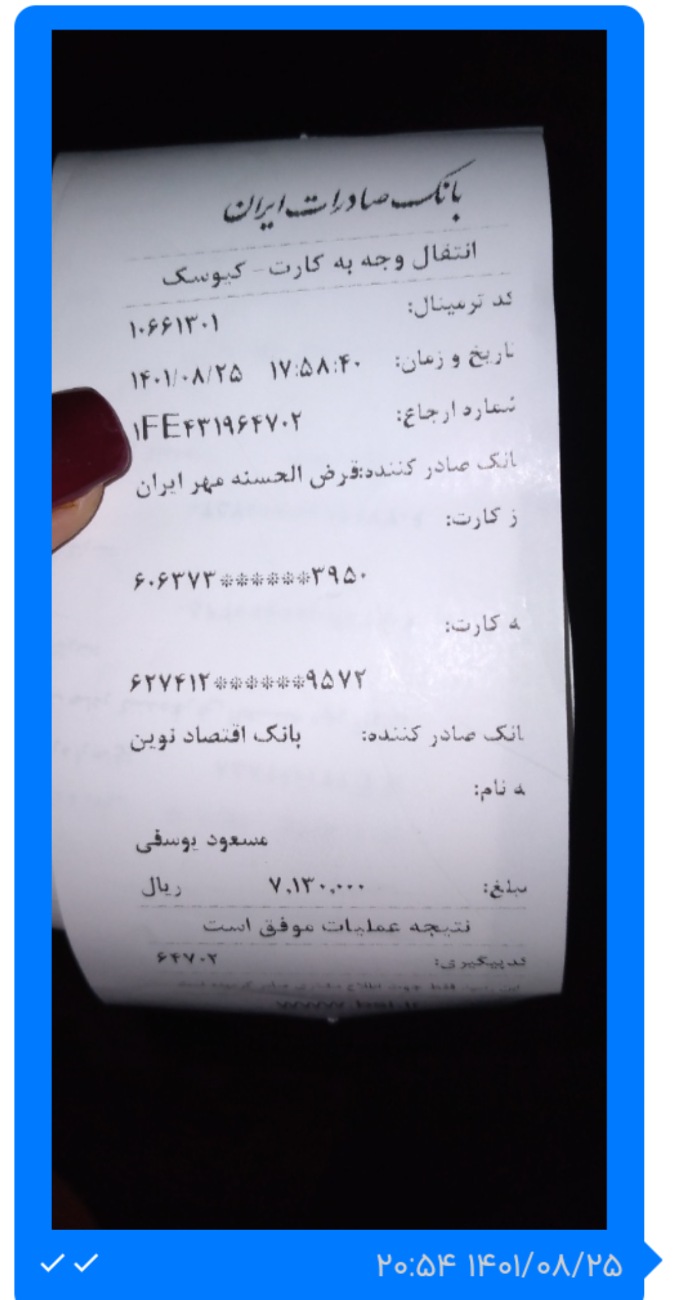 بانک صادرات ایران
انتقال وجه به کارت - کیوسک
کد ترمینال: ۱۰۶۶۱۳۰۱
تاریخ و زمان: ۱۷:۵۸:۴۰ ۱۴۰۱/۰۸/۲۵
شماره ارجاع: ۱FE۴۳۱۹۶۴۷۰۲
انک صادر کننده:قرض الحسنه مهر ایران
ز کارت:
۶۰۶۳۷۳******۳۹۵۰
ه کارت:
۶۲۷۴۱۲******۹۵۷۲
انک صادر کننده: بانک اقتصاد نوین
ه نام:
مسعود یوسفی
مبلغ: ۷,۱۳۰,۰۰۰ ریال
نتیجه عملیات موفق است
کد پیگیری: ۶۴۷۰۲
۲۰:۵۴ ۱۴۰۱/۰۸/۲۵